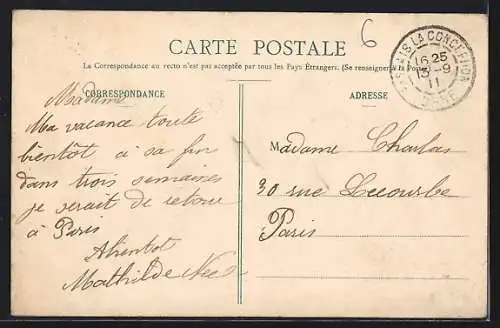 6
CARTE POSTALE
La Correspondance au recto n'est pas acceptée par tous les Pays Étrangers. (Se renseigner à la Poste)
CORRESPONDANCE
ADRESSE
PASSAIS LA CONCEPTION
16 25
13 - 9
11
ORNE
Madame
Ma vacance toute
bientôt a sa fin
dans trois semaines
je serait de retour
à Paris
Abientot
Mathilde
Madame Charlas
30 rue Lecourbe
Paris